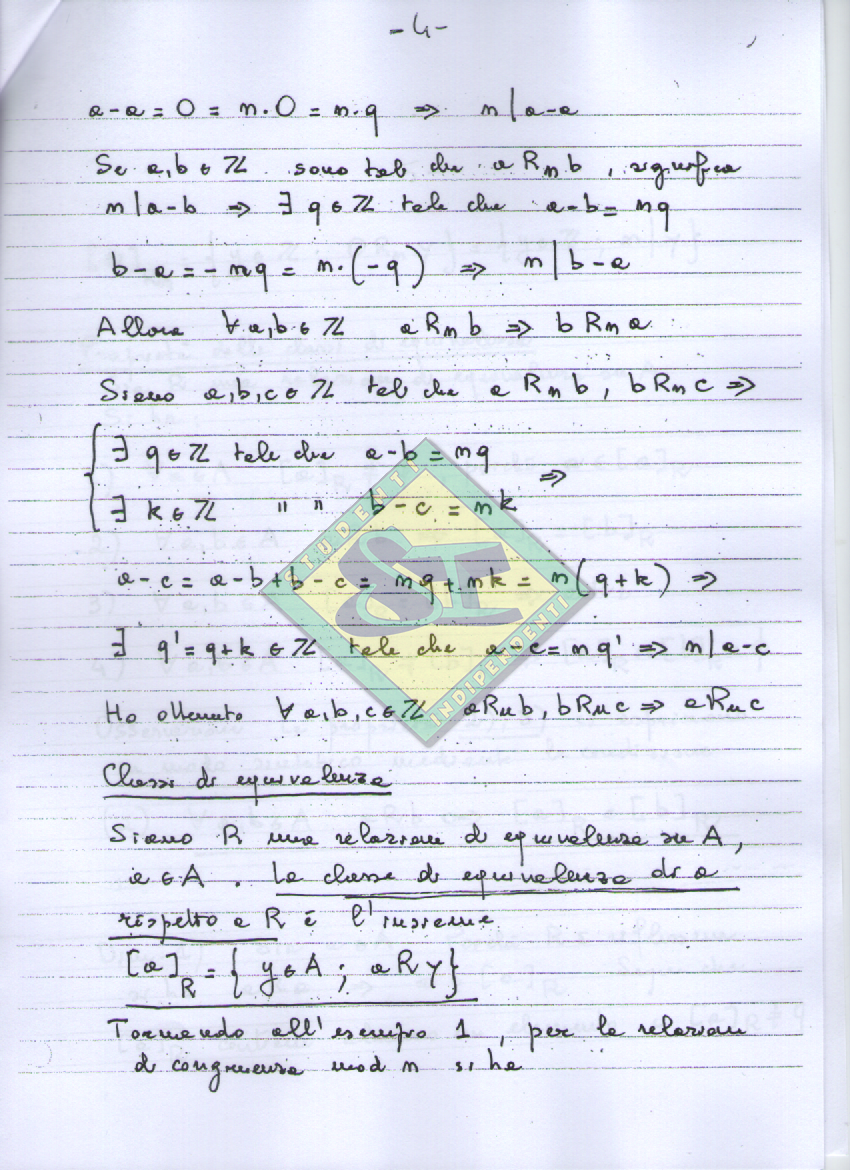 -4-
a-a = 0 = n·0 = n·q ⇒ n|a-a
Se a,b ∈ ℤ sono tali che a Rₙ b, significa
n|a-b ⇒ ∃ q ∈ ℤ tale che a-b = nq
b-a = -nq = n·(-q) ⇒ n|b-a
Allora ∀ a,b ∈ ℤ a Rₙ b ⇒ b Rₙ a
Siano a,b,c ∈ ℤ tali che a Rₙ b, b Rₙ c ⇒
{ ∃ q ∈ ℤ tale che a-b = nq ⇒
∃ k ∈ ℤ " " b-c = nk
a-c = a-b+b-c = nq+nk = n(q+k) ⇒
∃ q' = q+k ∈ ℤ tale che a-c = nq' ⇒ n|a-c
Ho ottenuto ∀ a,b,c ∈ ℤ aRₙb, bRₙc ⇒ aRₙc
Classi di equivalenza
Siano R una relazione di equivalenza su A,
a ∈ A. La classe di equivalenza di a
rispetto a R è l'insieme
[a]_R = { y ∈ A ; a R y }
Tornando all'esempio 1, per la relazione
di congruenza mod n si ha
STUDENTI
SI
INDIPENDENTI